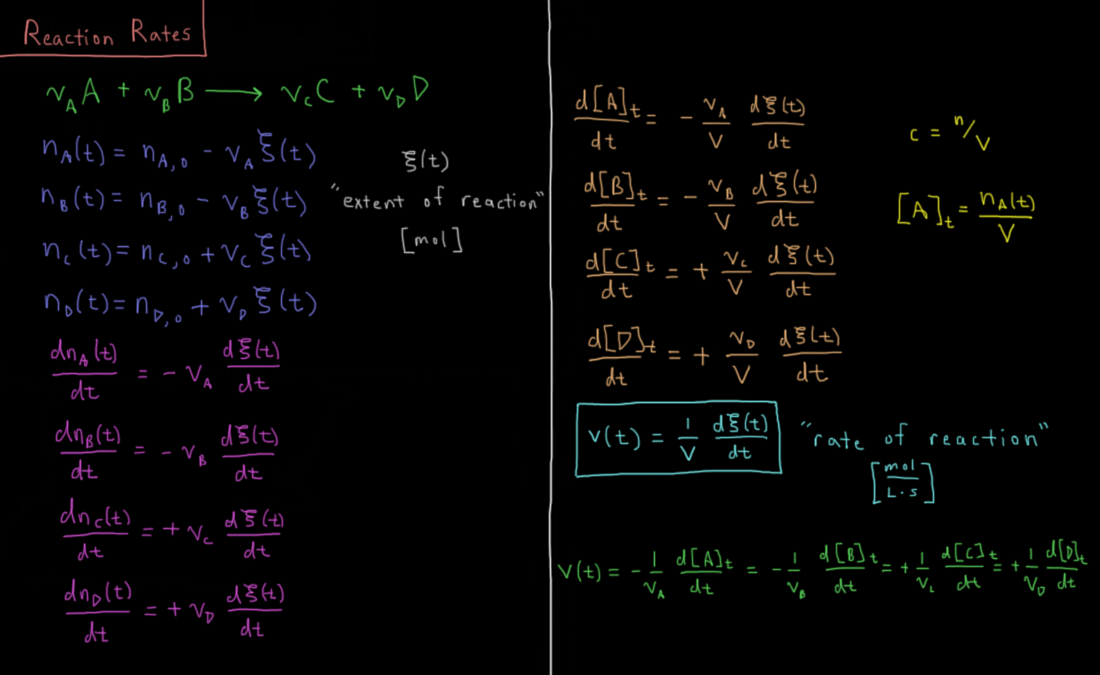 Reaction Rates
ν_A A + ν_B B ⟶ ν_C C + ν_D D
n_A(t) = n_{A,0} - ν_A ξ(t)
n_B(t) = n_{B,0} - ν_B ξ(t)
n_C(t) = n_{C,0} + ν_C ξ(t)
n_D(t) = n_{D,0} + ν_D ξ(t)
ξ(t)
"extent of reaction"
[mol]
dn_A(t)/dt = - ν_A dξ(t)/dt
dn_B(t)/dt = - ν_B dξ(t)/dt
dn_C(t)/dt = + ν_C dξ(t)/dt
dn_D(t)/dt = + ν_D dξ(t)/dt
d[A]_t/dt = - ν_A/V dξ(t)/dt
d[B]_t/dt = - ν_B/V dξ(t)/dt
d[C]_t/dt = + ν_C/V dξ(t)/dt
d[D]_t/dt = + ν_D/V dξ(t)/dt
c = n/V
[A]_t = n_A(t)/V
v(t) = 1/V dξ(t)/dt
"rate of reaction"
[mol/L·s]
v(t) = - 1/ν_A d[A]_t/dt = - 1/ν_B d[B]_t/dt = + 1/ν_C d[C]_t/dt = + 1/ν_D d[D]_t/dt